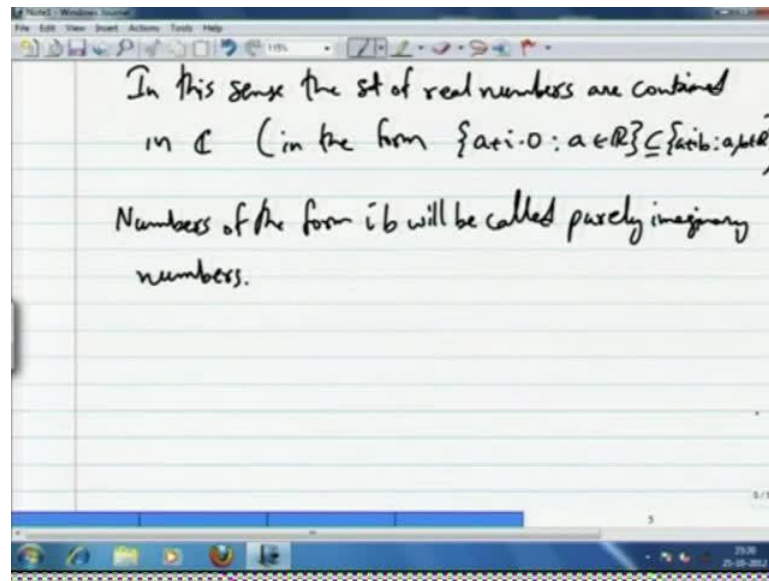 Note1 - Windows Journal
File Edit View Insert Actions Tools Help
115%
In this sense the set of real numbers are contained
in ℂ (in the form {a+i·0 : a ∈ ℝ} ⊆ {a+ib : a,b∈ℝ}
Numbers of the form ib will be called purely imaginary
numbers.
5
25-10-2012